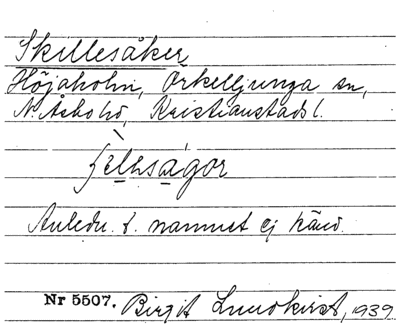 Skillesåker
Höjaholm, Örkelljunga sn,
N. Åsbo hd, Kristianstads l.
Anledn. t. namnet ej känd.
Nr 5507. Birgit Lundkvist, 1939